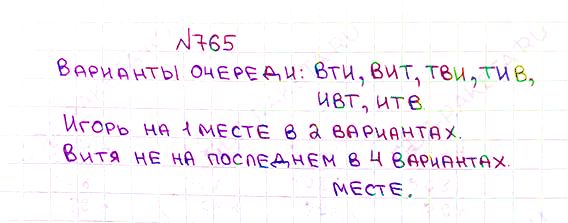 №765
Варианты очереди: ВТИ, ВИТ, ТВИ, ТИВ,
ИВТ, ИТВ
Игорь на 1 месте в 2 вариантах.
Витя не на последнем в 4 вариантах.
месте.